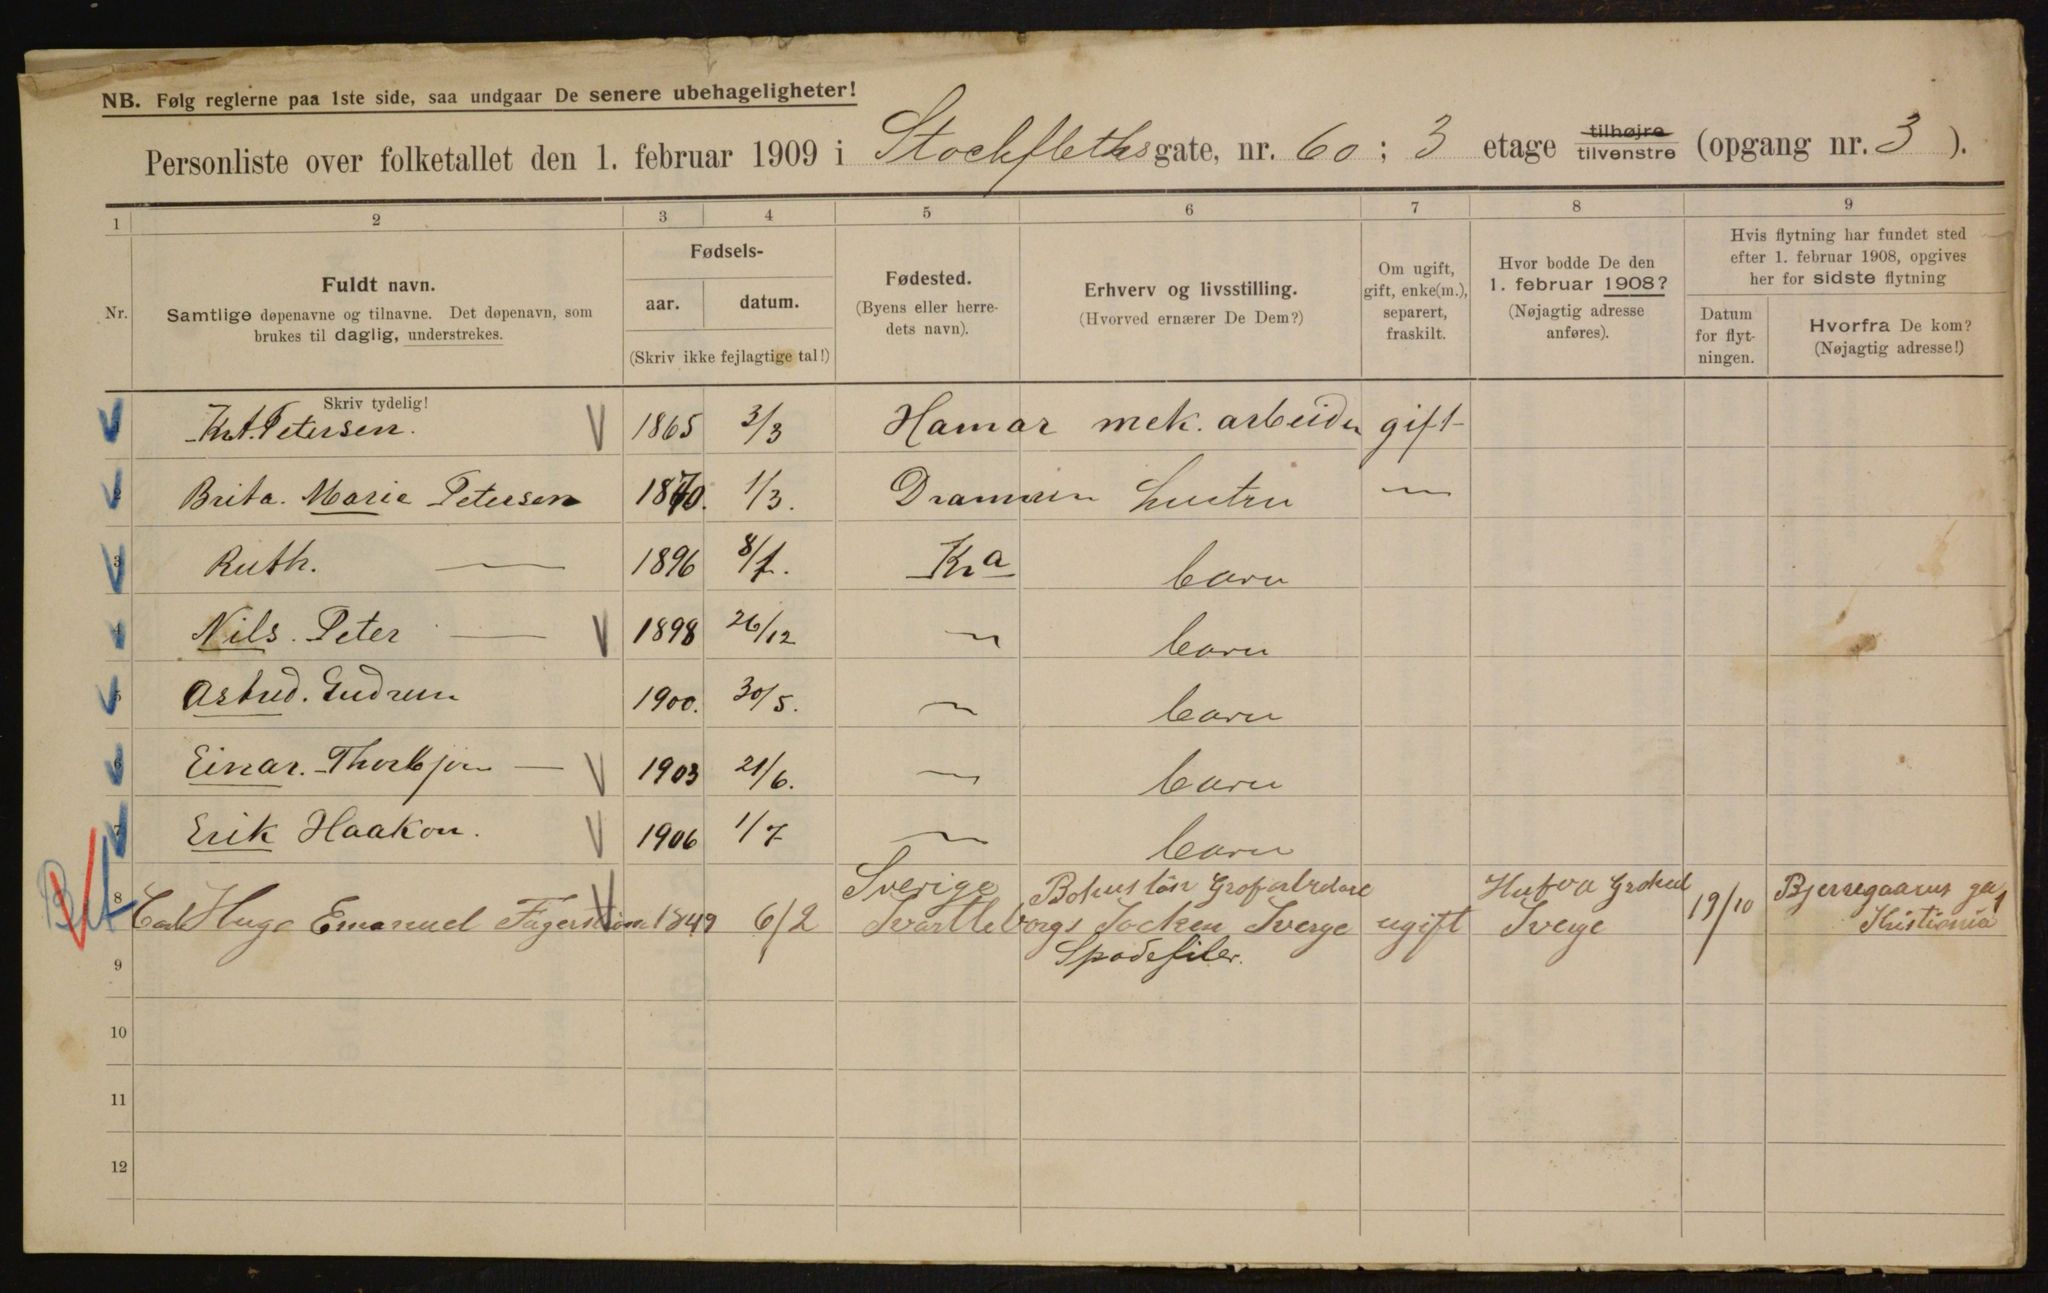 NB. Følg reglerne paa 1ste side, saa undgaar De senere ubehageligheter!
Personliste over folketallet den 1. februar 1909 i Stockflethsgate, nr. 60; 3 etage tilhøjre tilvenstre (opgang nr. 3).
1 2 3 4 5 6 7 8 9
Nr.
Fuldt navn.
Samtlige døpenavne og tilnavne. Det døpenavn, som
brukes til daglig, understrekes.
Skriv tydelig!
Fødsels-
aar. datum.
(Skriv ikke fejlagtige tal!)
Fødested.
(Byens eller herre-
dets navn).
Erhverv og livsstilling.
(Hvorved ernærer De Dem?)
Om ugift,
gift, enke(m.),
separert,
fraskilt.
Hvor bodde De den
1. februar 1908?
(Nøjagtig adresse
anføres).
Hvis flytning har fundet sted
efter 1. februar 1908, opgives
her for sidste flytning
Datum
for flyt-
ningen.
Hvorfra De kom?
(Nøjagtig adresse!)
1 Petersen. 1865 3/3 Hamar mek. arbeider gift
2 Brita. Marie Petersen 1870. 1/3. Drammen hustru —
3 Ruth. — 1896 8/1. Kra barn
4 Nils. Peter — 1898 26/12 — barn
5 Astrid. Gudrun 1900. 30/5. — barn
6 Einar. Thorbjørn — 1903 21/6. — barn
7 Erik Haakon. 1906 1/7 — barn
Sverige Bohuslän Grofarbetare
8 Carl Hugo Emanuel Fagerström 1849 6/2 Svarteborgs Socken Sverge ugift Sverge 19/10 Bjerregaards ga
Kristiania
Spadefiler.
9
10
11
12